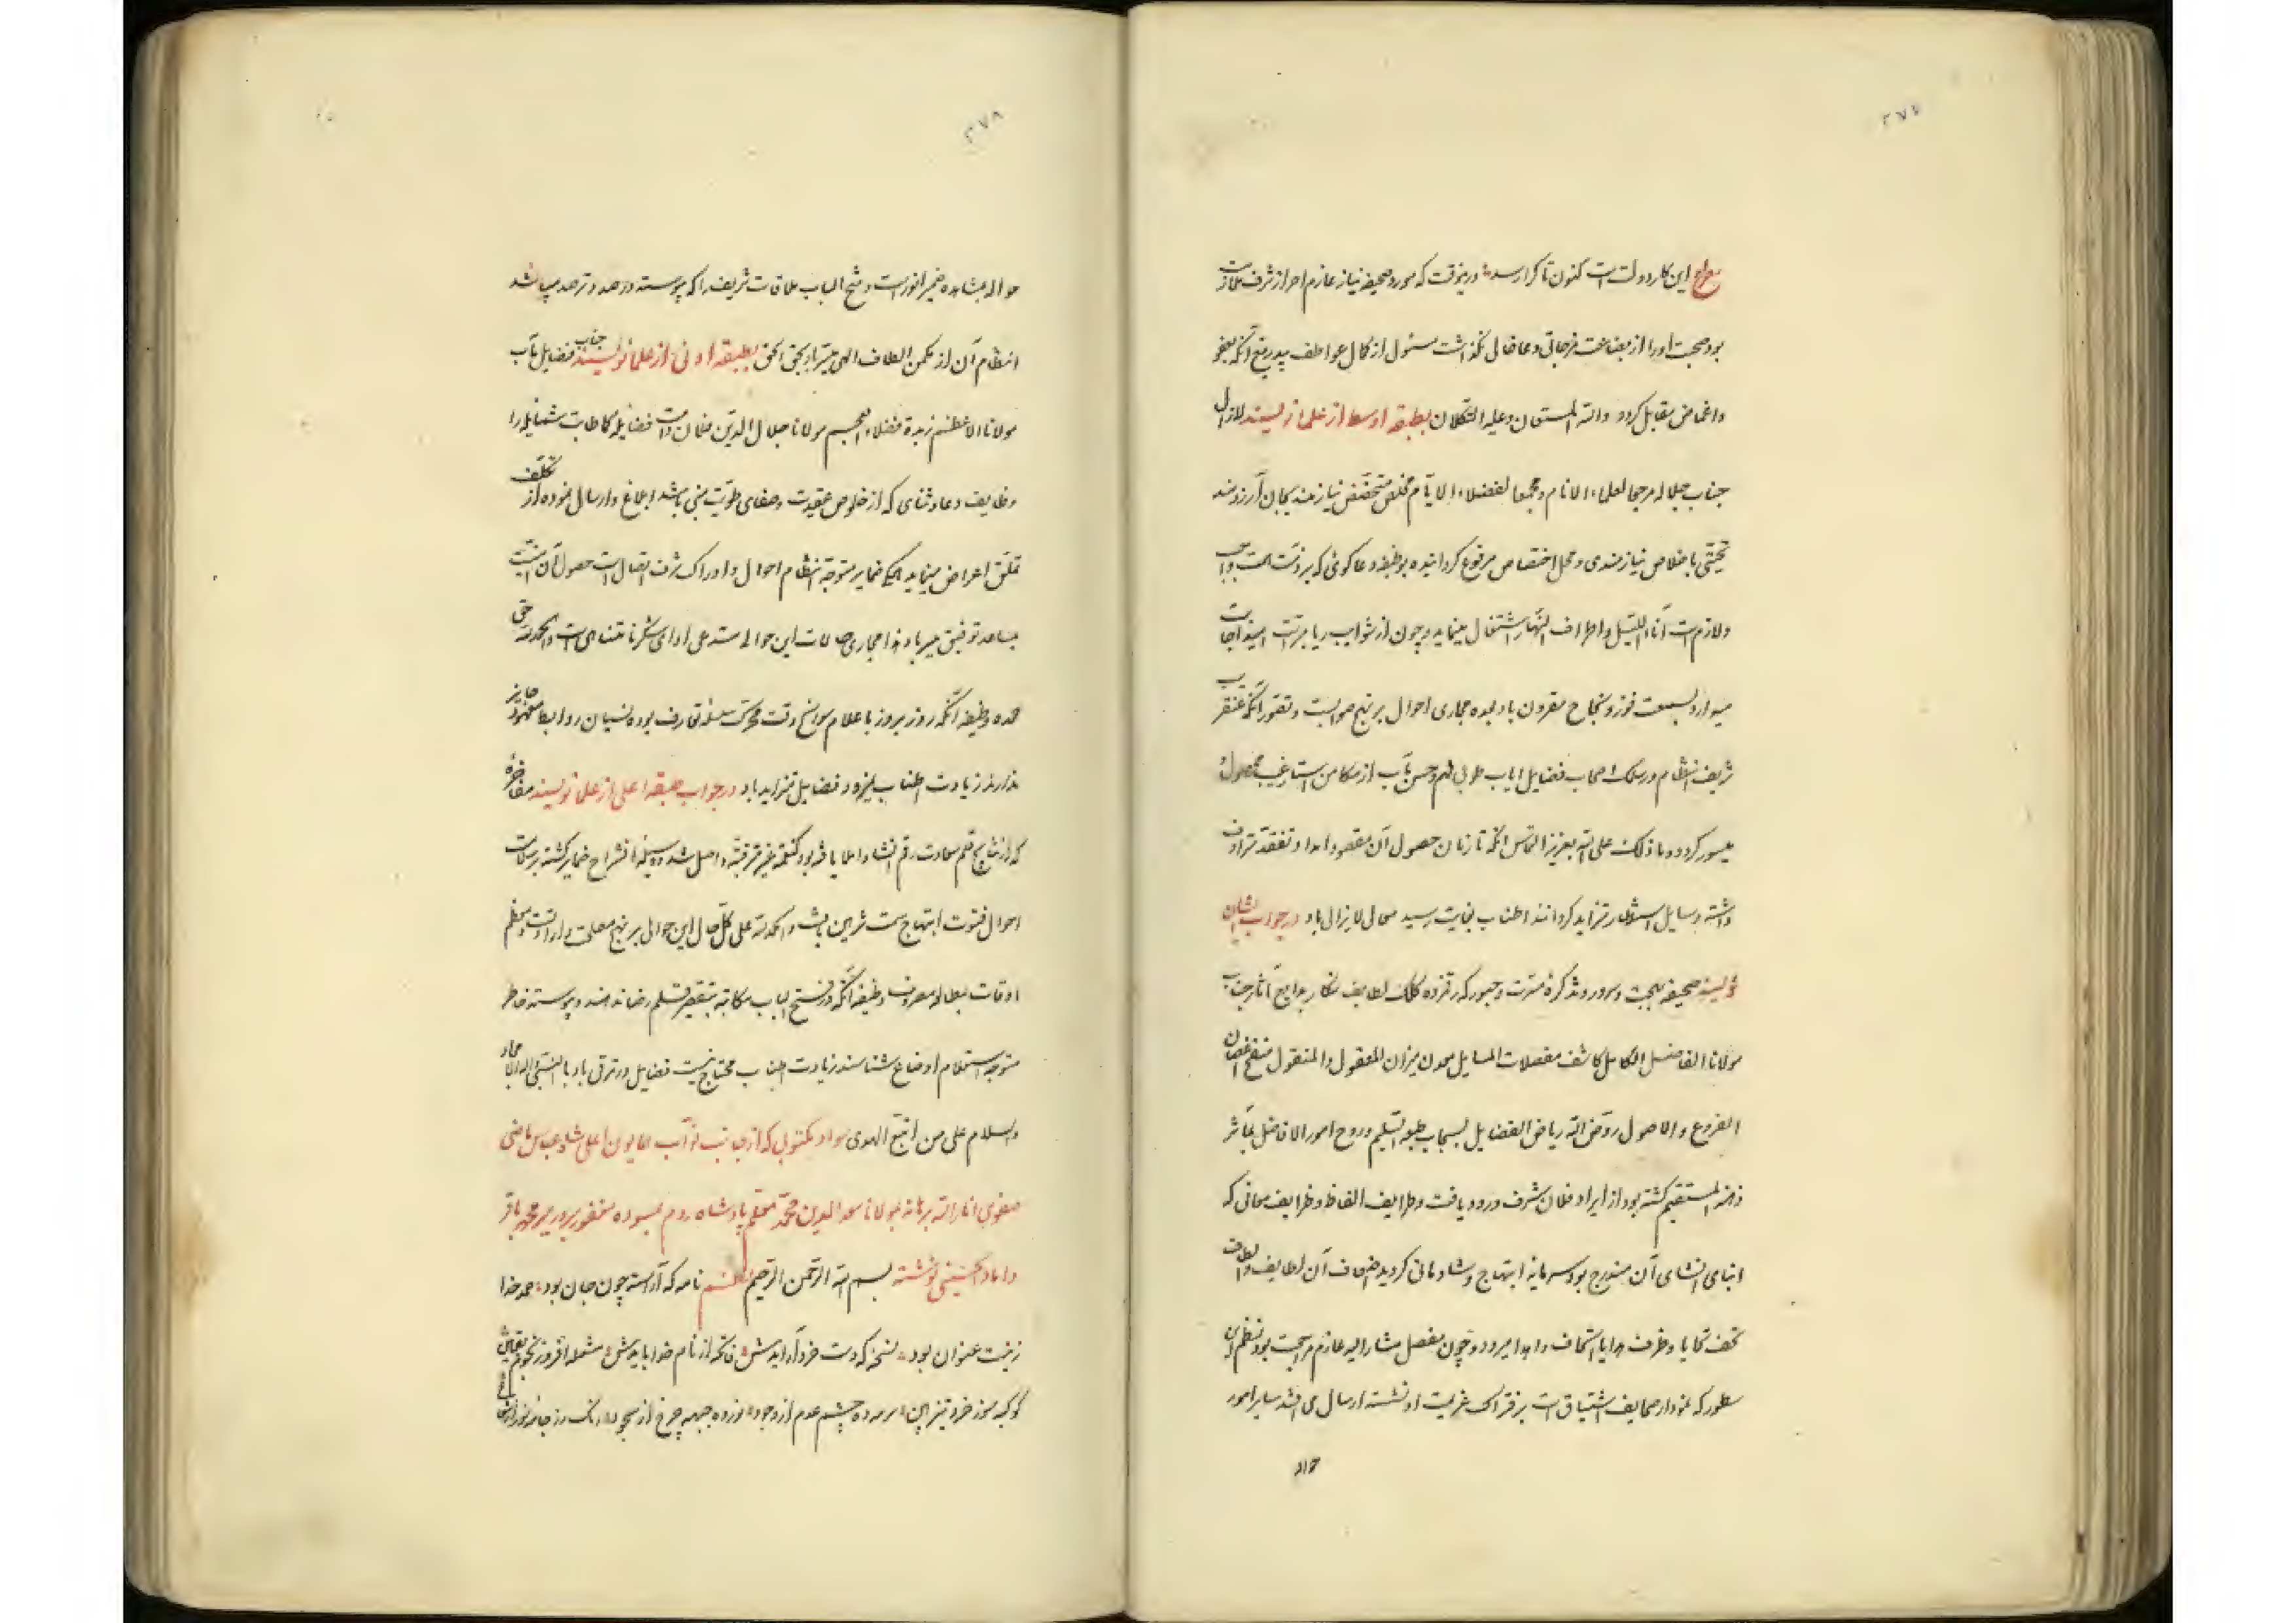 ۲۷۷
مصراع این کار دولتست کنون تا کرا رسد درینوقت که مورد صحیفه نیاز عازم احراز شرف ملازمت
بود صحبت او را از بضاعت مزجاتی دعا خالی نگذاشت مسئول از کمال عواطف بیدریغ آنکه بعفو
واغماض مقابل کردد والله المستعان وعلیه التکلان بطبقه اوسط از علما نویسند لازال
جناب جلاله مرجعا لعلماء الانام ومجمعا لفضلاء الایام مخلص نیازمند بجان آرزومند
تحیتی باخلاص نیازمندی و محل اختصاص مرفوع کردانیده بوظیفه دعا کوئی که بر ذمت همت واجب
ولازمست آناء اللیل واطراف النهار اشتغال مینماید و چون از شوایب ریا مبراست امید اجابت
میدارد بسمت فوز ونجاح مقرون باد بمنه مجاری احوال بر نهج صوابست و
شریف انتظام در سلک اصحاب فضایل ایاب طوبی لهم وحسن مآب از مکامن استار غیب بحصول
میسور کردد وما ذلک علی الله بعزیز التماس آنکه تا زمان حصول آن مقصود امداد تفقد مترادف
داشته وسایل استیناس متزاید کردانند اطناب بغایت رسید معالی لایزال باد در جواب ایشان
نویسند صحیفه بهجت وسرور وتذکره مسرت وحبور که رقمزده کلک لطایف نکار بدایع آثار جناب
مولانا الفاضل الکامل کاشف معضلات المسایل مدون میزان المعقول والمنقول منقح اغصان
الفروع والاصول روض الله ریاض الفضایل بسحاب طبعه السلیم وروح امور الافاضل بمآثر
ذهنه المستقیم کشته بود از ایراد فلان شرف ورود یافت وطرایف الفاظ وظرایف معانی که
اثنای انشای آن مندرج بود سرمایه ابتهاج وشادمانی کردید اضعاف آن لطایف
تحف تحایا وظرف هدایا استحاف واهدا میرود و چون مفصل مشار الیه عازم مراجعت بود نظم این
سطور که نمودار صحایف اشتیاقست بر فتراک عزیمت او بسته ارسال می افتد سایر امور
حواله
۲۷۸
حواله بمشاهده ضمیر انورست و فتح الباب ملاقات شریف را که پیوسته در صدد ترصد میباشد
انتظام آن از مکمن الطاف الهی میسر باد بحق الحق بطبقه ادنی از علما نویسند جناب فضایل مآب
مولانا الاعظم زبدة فضلاء العجم مولانا جلال الدین فلان دامت فضایله کما طابت شمایله را
وظایف دعا وثنای که از خلوص عقیدت وصفای طویت مبنی باشد ابلاغ وارسال نموده از تکلف
تملق اعراض مینماید همکی ضمایر متوجه انتظام احوال وادراک شرف اتصالست حصول آن امنیت
بمساعد توفیق میسر باد هذا مجاری حالات این حوالی مستدعی ادای شکر نامتناهی است والحمد لله حق
حمده وظیفه آنکه روز بروز باعلام سوانح وقت محرک سلسله تعارف بوده نسیان روابط معهود جایز
ندارند زیادت اطناب نیفزود فضایل متزاید باد در جواب طبقه اعلی از علما نویسند مفاخره
که از نتایج قلم سعادت رقم انشا واملا یافته بود کنعمة غیر مترقبة واصل شد وسیله انشراح ضمایر کشته بر سلامت
احوال فتوت ابتهاج مسرت قرین باشد والحمد لله علی کل حال این حوالی بر نهج مصلحت وارادتست ومعظم
اوقات بمطالعه مصروف وظیفه آنکه در فتح الباب مکاتبه بتقصیر قلم رضا ندهند و پیوسته خاطر
متوجه استعلام اوضاع شناسند زیادت اطناب محتاج نیست فضایل در ترقی باد بالنبی وآله الامجاد
والسلام علی من اتبع الهدی سواد مکتوبی که از جانب نواب همایون اعلی شاه عباس ماضی
صفوی انار الله برهانه بمولانا سعد الدین محمد معلم پادشاه روم بمسوده مغفور مبرور میر محمد باقر
داماد الحسینی نوشته بسم الله الرحمن الرحیم نظم نامه که آراسته چون جان بود حمد خدا
زینت عنوان بود نسخه که دست خرد آرایدش فاتحه از نام خدا بایدش مشعله افروز نجوم یقین
کوکبه سوز خرد تیزبین سرمه ده چشم عدم از وجود نور ده جبهه چرخ از سجود